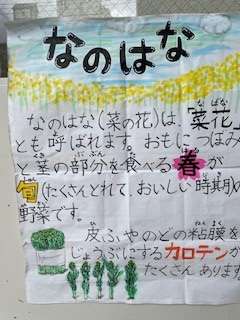 なのはな
なのはな(菜の花)は、「菜花」
とも呼ばれます。おもにつぼみ
と茎の部分を食べる春が
旬(たくさんとれて、おいしい時期)の
野菜です。
皮ふやのどの粘膜を
じょうぶにするカロテンが
たくさんあります